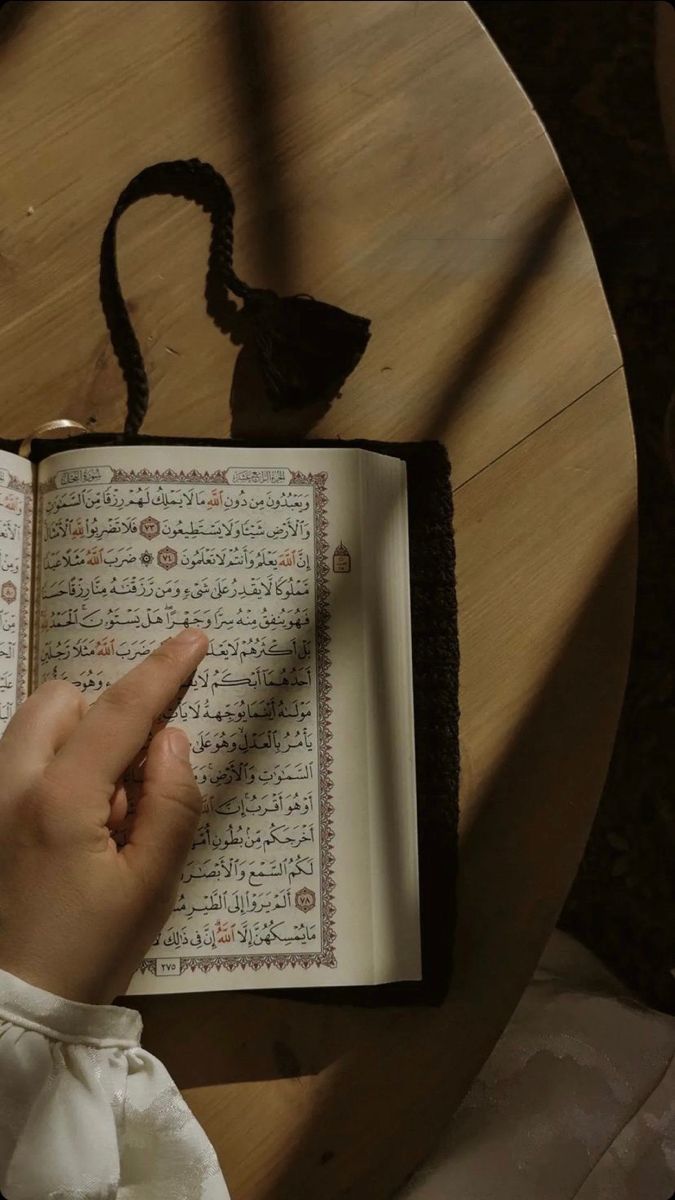 الجزء الرابع عشر سورة النحل
وَيَعْبُدُونَ مِن دُونِ ٱللَّهِ مَا لَا يَمْلِكُ لَهُمْ رِزْقًا مِّنَ ٱلسَّمَٰوَٰتِ
وَٱلْأَرْضِ شَيْـًٔا وَلَا يَسْتَطِيعُونَ ٧٣ فَلَا تَضْرِبُوا۟ لِلَّهِ ٱلْأَمْثَالَ
إِنَّ ٱللَّهَ يَعْلَمُ وَأَنتُمْ لَا تَعْلَمُونَ ٧٤ ۞ ضَرَبَ ٱللَّهُ مَثَلًا عَبْدًا
مَّمْلُوكًا لَّا يَقْدِرُ عَلَىٰ شَىْءٍ وَمَن رَّزَقْنَٰهُ مِنَّا رِزْقًا حَسَنًا
فَهُوَ يُنفِقُ مِنْهُ سِرًّا وَجَهْرًا ۖ هَلْ يَسْتَوُۥنَ ۚ ٱلْحَمْدُ لِلَّهِ
بَلْ أَكْثَرُهُمْ لَا ضَرَبَ ٱللَّهُ مَثَلًا رَّجُلَيْنِ
أَحَدُهُمَآ أَبْكَمُ لَا وَهُوَ
مَوْلَىٰهُ أَيْنَمَا يُوَجِّههُّ لَا يَأْتِ
يَأْمُرُ بِٱلْعَدْلِ ۙ وَهُوَ عَلَىٰ
ٱلسَّمَٰوَٰتِ وَٱلْأَرْضِ ۚ
أَوْ هُوَ أَقْرَبُ ۚ إِنَّ ٱللَّهَ
أَخْرَجَكُم مِّنۢ بُطُونِ
لَكُمُ ٱلسَّمْعَ وَٱلْأَبْصَٰرَ
٧٨ أَلَمْ يَرَوْا۟ إِلَى ٱلطَّيْرِ
مَا يُمْسِكُهُنَّ إِلَّا ٱللَّهُ ۗ إِنَّ فِى ذَٰلِكَ
٢٧٥